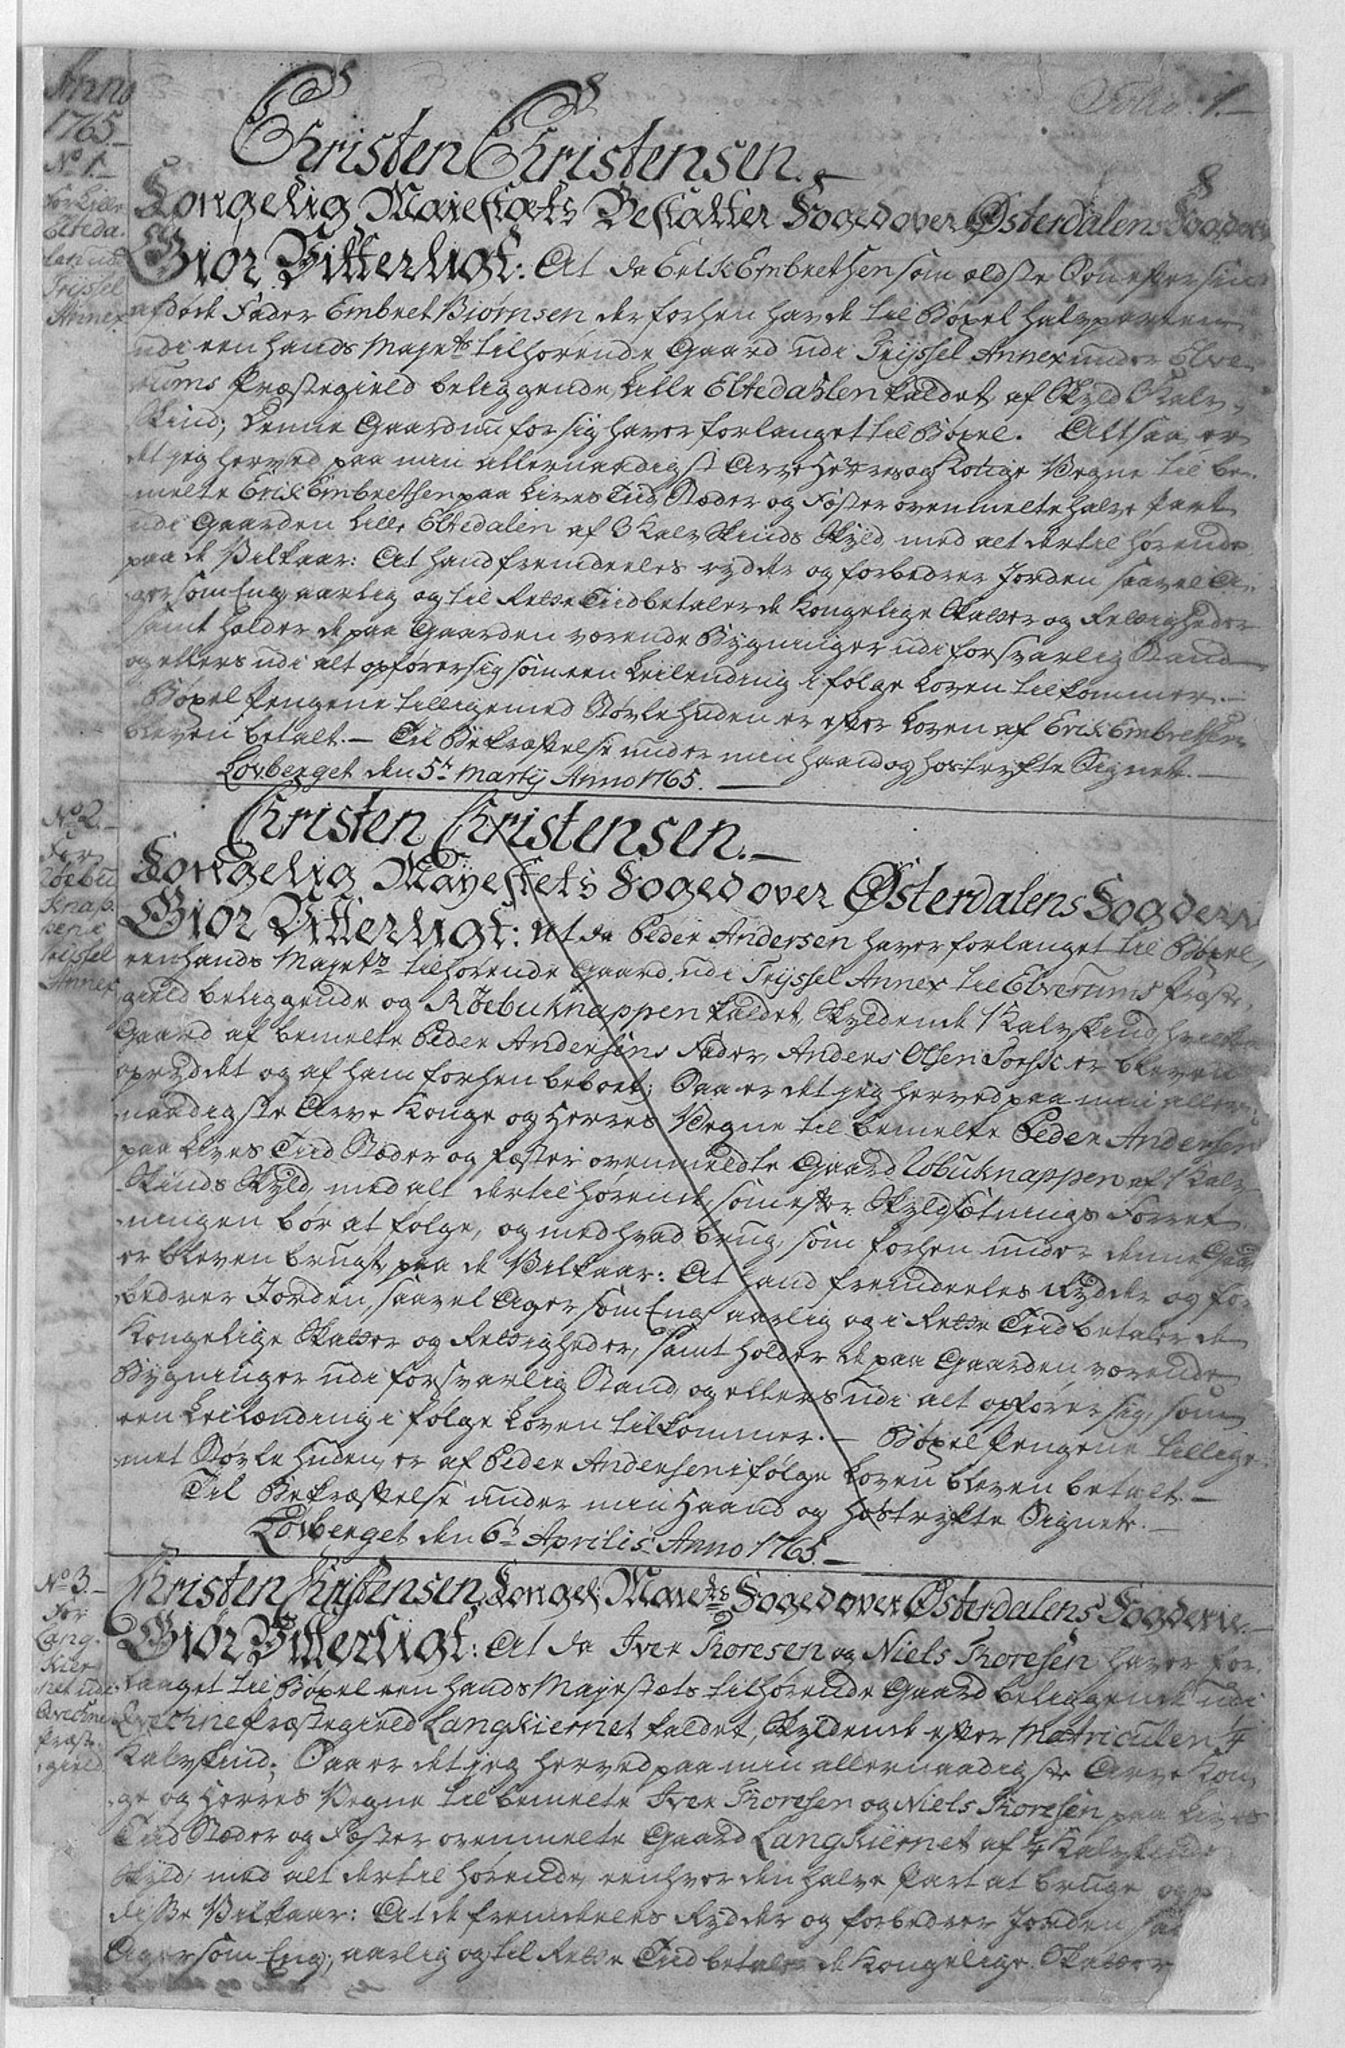 Folio. 1.
Anno
1765.
No 1.
For Lille
Elteda-
len ud
Tryssel
Annex
Christen Christensen.
Kongelig Majestæts Bestalter Foged over Østerdalens Fogderi
Giør Vitterligt: At da Erik Embretsen som ældste Søn efter sin
afdøde Fader Embret Biørnsen der forhen havde til Bøxel halvparten
udi een hands Majets tilhørende Gaard udi Tryssel Annex under Elve-
rums Præstegield beliggende, Lille Eltedahlen kaldet, af Skyld 3 Kalv-
skind; Denne Gaard nu for sig haver forlanget til Bøxel. Altsaa er
det jeg herved paa min allernaadigst Arve Herres og Konge Vegne til be-
melte Erik Embretsen paa Lives Tiid Stæder og Fæster ovenmelte halve Part
udi Gaarden Lille Eltedalen af 3 Kalv Skinds Skyld, med alt dertil hørende
paa de Vilkaar: At hand fremdeeles rydder og forbedrer Jorden saavel A-
ger som Eng, aarlig og til Rette Tiid betaler de Kongelige Skatter og Rettigheder
samt holder de paa Gaarden værende Bygninger udi forsvarlig Stand
og ellers udi alt opfører sig som een Leilending i følge Loven tilkommer.
Bøxel Pengene tilligemed Støvlehuden er efter Loven af Erik Embretsen
bleven betalt. – Til Bekræftelse under min Haand og hostrykte Signet. –
Løvberget den 5t Martij Anno 1765. –
No 2.
For
Røebu
Knap-
pen i
Tryssel
Annex
Christen Christensen. –
Kongelig Mayestets Foged over Østerdalens Fogderi
Giør Vitterligt: At da Peder Andersen haver forlanget til Bøxel,
een hands Majets tilhørende Gaard, udi Tryssel Annex til Elverums Præste-
gield beliggende og Røebuknappen kaldet, Skyldende 1 Kalvskind, hvilken
Gaard af bemelte Peder Andersens Fader, Anders Olsen er bleven
opryddet og af ham forhen beboet; Saa er det jeg herved paa min aller-
naadigste Arve Konge og Herres Vegne til bemelte Peder Andersen
paa Lives Tiid Stæder og fæster ovenmeldte Gaard Røbuknappen af 1 Kalv-
Skinds Skyld, med alt dertil hørende, som efter Skyldsætnings Forret-
ningen bør at følge, og med hvad brug, som forhen under denne Gaard
er bleven brugt, paa de Vilkaar: At hand fremdeeles Rydder og for-
bedrer Jorden, saavel Ager som Eng, aarlig og i Rette Tiid betaler de
Kongelige Skatter og Rettigheder, samt holder de paa Gaarden værende
Bygninger udi forsvarlig Stand, og ellers udi alt opfører sig, som
een Leilænding i følge Loven tilkommer. – Bøxel Pengene tillige-
met Støvle Huden, er af Peder Andersen i følge Loven bleven betalt. –
Til Bekræftelse under min Haand og hostrykte Signet. –
Løvberget den 6t Aprilis Anno 1765. –
No 3. –
For
Lang-
Kier-
net udi
Qvechne
Præste-
gield
Christen Christensen, Kongel: Majets Foged over Østerdalens Fogderie. –
Giør Vitterligt: At da Iver Thoresen og Niels Thoresen haver for-
langet til Bøxel een hands Majestæts tilhørende Gaard beliggende udi
Qvechne Præstegield Langkiernet kaldet, Skyldende efter Matriculen 1/4
Kalvskind; Saa er det jeg herved paa min allernaadigste Arve Kon-
ge og Herres Vegne til bemelte Iver Thoresen og Niels Thoresen paa Lives
Tiid Stæder og Fæster ovenmelte Gaard Langkiernet af 1/4 Kalvskinds
Skyld, med alt dertil hørende, eenhver den halve Part at bruge, og
disse Vilkaar: At de fremdeeles Rydder og forbedrer Jorden
Ager som Eng, aarlig og til Rette Tiid betaler de Kongelige Skatter